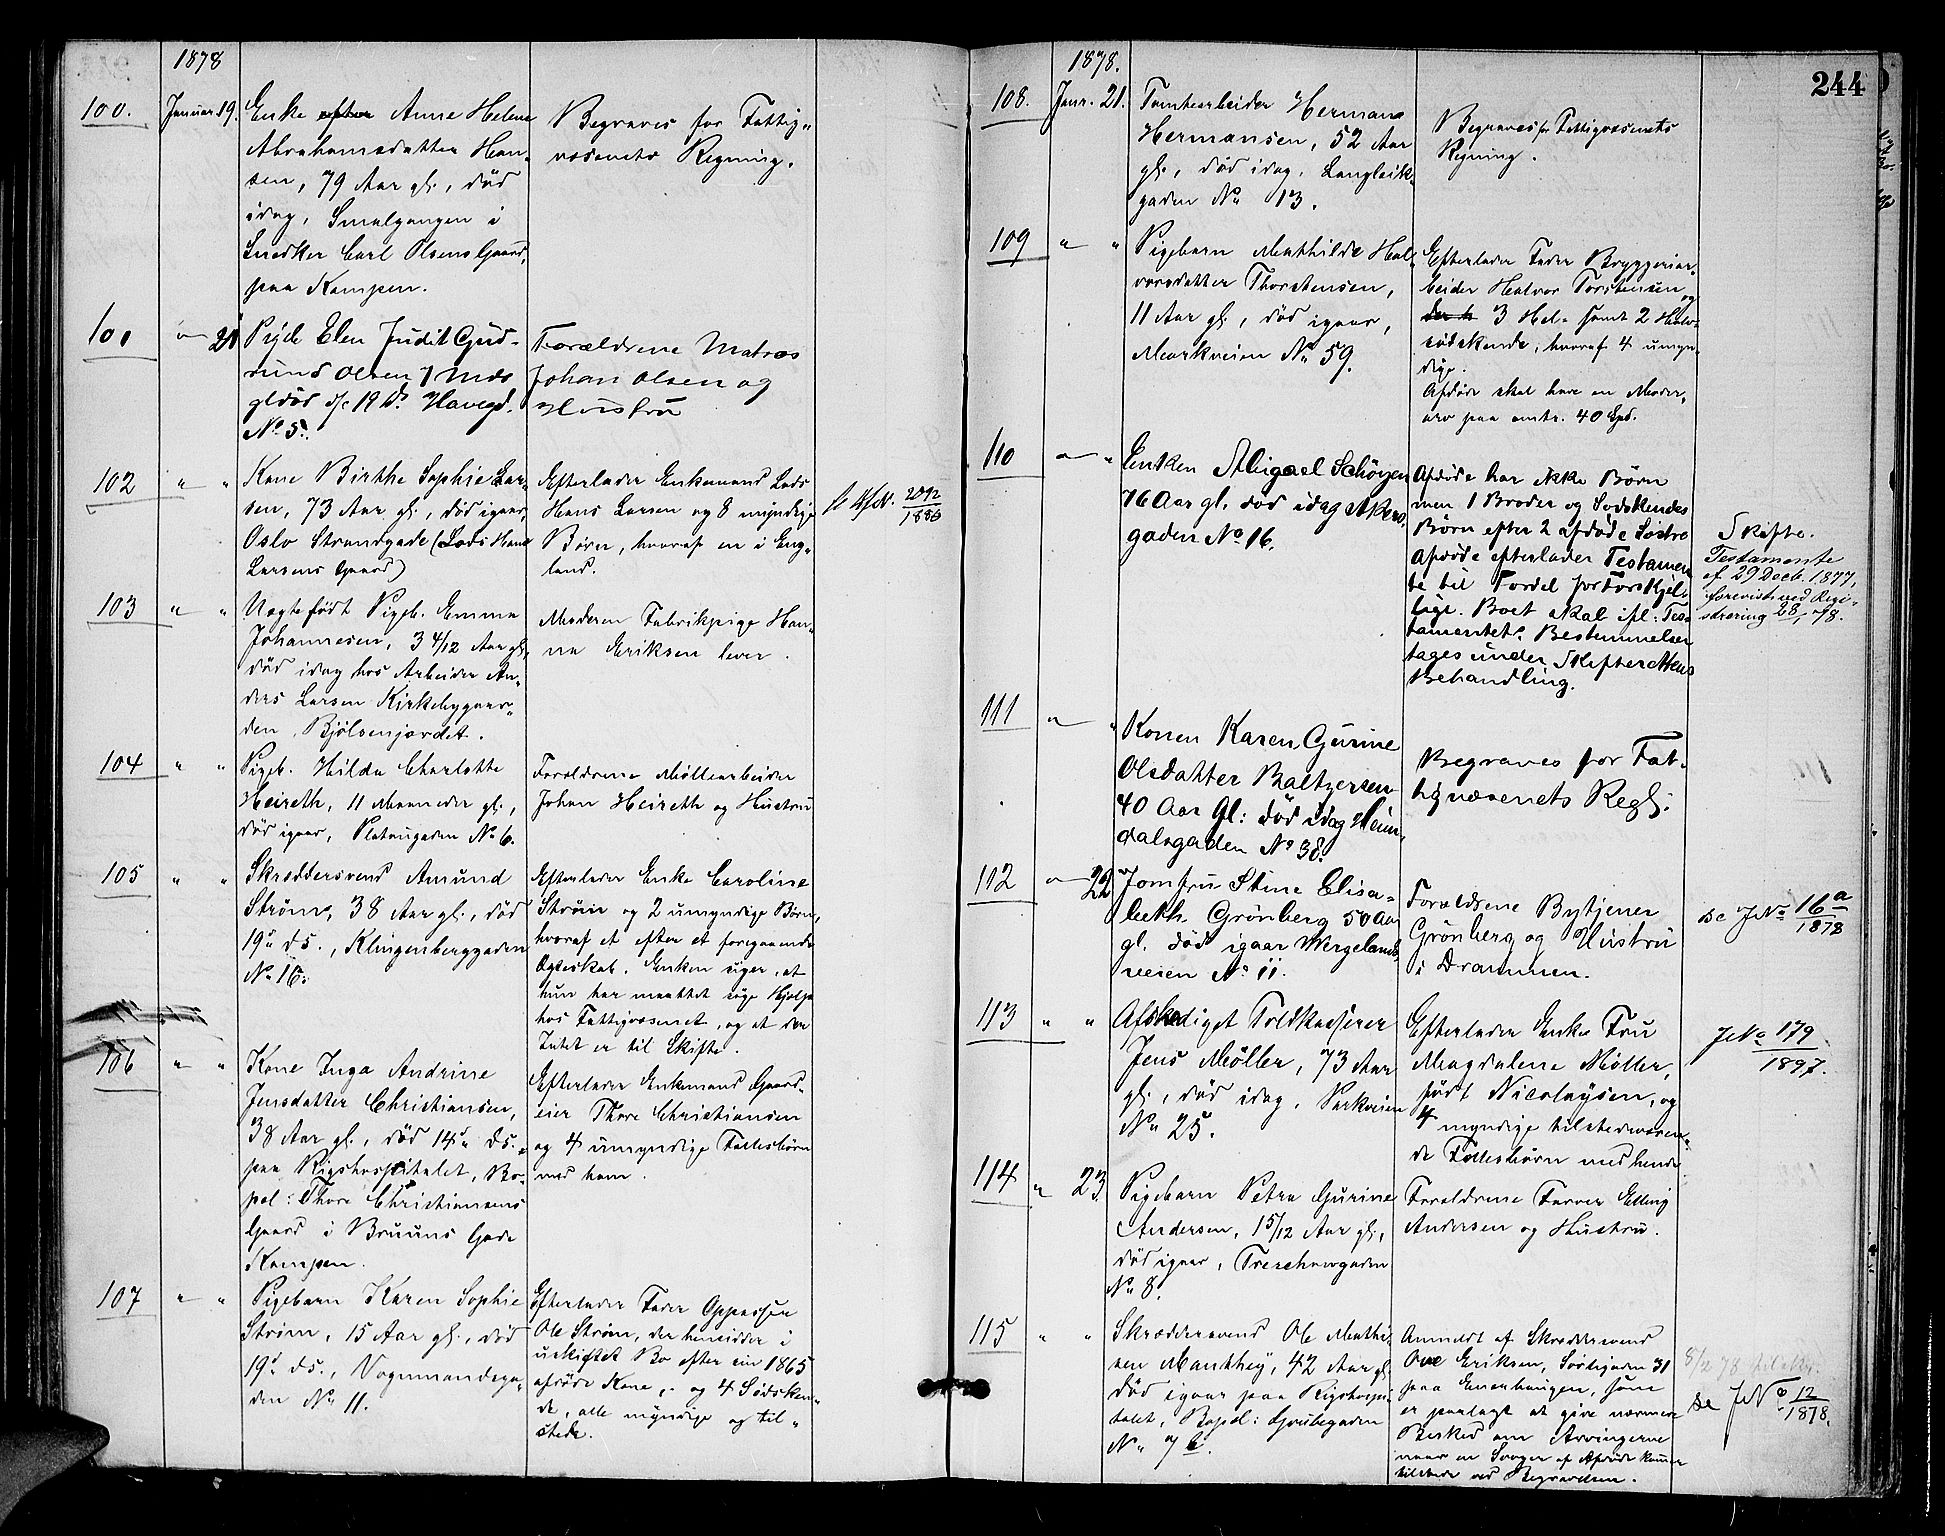 1878
100. Januar 19. Enke efter Anne Helene
Abrahamsdatter Han-
sen, 79 Aar gl., död
idag, Smalgangen i
Snedker Carl Olsens Gaard,
paa Kampen.
Begraves for Fattig-
væsenets Regning.
101 " 21 Pigeb. Elen Judit Gud-
rund Olsen 7 Mdr
gl död d/c 19 d. Havegd.
No 5.
Forældrene Matros
Johan Olsen og
Hustru
102 " " Kone Birthe Sophie Lar-
sen, 73 Aar gl., död igaar,
Oslo Strandgade (Lods Hans
Larsens Gaard)
Efterlader Enkemand Lods
Hans Larsen og 8 myndige
Börn, hvoraf en i Eng-
land.
2092
1886
103 " " Uægtefödt Pigeb. Emma
Johannesen, 3 4/12 Aar gl.,
död idag hos Arbeider An-
ders Larsen Kirkebygaar-
den, Bjölsenjordet.
Moderen Fabrikpige Han-
na Eriksen lever.
104 " " Pigeb. Hilda Charlotte
Heireth, 11 Maaneder gl.,
död igaar, Platougaden No 6.
Forældrene Möllearbeider
Johan Heireth og Hustru
105 " " Skræddersvend Amund
Ström, 38 Aar gl., död
19de ds., Klingenberggaden
No 16.
Efterlader Enke Caroline
Ström og 2 umyndige Börn,
hvoraf et efter et foregaaende
Ægteskab. Enken siger, at
hun har maattet söge Hjælp
hos Fattigvæsenet, og at der
Intet er til Skifte.
106 " " Kone Inga Andrine
Jensdatter Christiansen,
38 Aar gl., död 14de ds.
paa Rigshospitalet, Bo-
pæl: Thore Christiansens
Gaard i Bruuns Gade
Kampen.
Efterlader Enkemand Gaard-
eier Thore Christiansen
og 4 umyndige Fællesbörn
med ham.
107 " " Pigebarn Karen Sophie
Ström, 15 Aar gl., död
19d ds., Vognmandsga-
den No 11.
Efterlader Fader Oppasser
Ole Ström, der hensidder i
uskiftet Bo efter sin 1865
afdöde Kone, og 4 Södsken-
de, alle myndige og til-
stede.
244
1878.
108. Janr. 21. Tomtearbeider Herman
Hermansen, 52 Aar
gl., död idag, Langleik-
gaden No 13.
Begraves for Fattigvæsenets
Regning.
109 " " Pigebarn Mathilde Hal-
vorsdatter Thorstensen,
11 Aar gl., död igaar,
Markveien No 59.
Efterlader Fader Bryggeriar-
beider Halvor Torstensen og
3 Hel- samt 2 Halv-
södskende, hvoraf 4 umyn-
dige.
Afdöde skal have en Möder-
arv paa omtr. 40 Spd.
110 " " Enken Abigael Schörgen
76 Aar gl. död idag Akers-
gaden No 16.
Afdöde har ikke Börn
men 1 Broder og Sodskendes
Börn efter 2 afdöde Söstre
Afdöde efterlader Testamen
te til Fordel for Forskjel-
lige. Boet skal ifl. Tes-
tamentets Bestemmelser
tages under Skifterettens
Behandling.
Skifte.
Testamente
af 29 Decb. 1877,
forevist ved Regi-
strering 28/1 78.
111 " " Konen Karen Gurine
Olsdatter Baltzersen
40 Aar gl: död idag Heim-
dalsgaden No 38.
Begraves for Fat-
tigvæsenets Regl:
112 " 22 Jomfru Stine Elisa-
beth Grönberg 50 Aar
gl. död igaar Wergelands-
veien No 11.
Forældrene Bytjener
Grönberg og Hustru
i Drammen.
se JNo 16a
1878
113 " " Afskediget Toldkasserer
Jens Möller, 73 Aar
gl., död idag, Parkveien
No 25.
Efterlader Enke Fru
Magdalene Möller,
födt Nicolaysen, og
4 myndige tilstedeværen-
de Fællesbörn med hende
JNo 179
1897.
114 " 23 Pigebarn Petra Gurine
Andersen, 1 5/12 Aar gl.,
död igaar, Treschowsgaden
No 8.
Forældrene Farver Elling
Andersen og Hustru.
115 " " Skræddersvend Ole Mathi-
sen Manthey, 42 Aar gl.
död igaar paa Rigshospi-
talet, Bopæl: Grubegaden
No 7 b.
Anmeldt af Skræddersvend
Ove Eriksen, Sörligaden 31
paa Enerhaugen, som
er paalagt at give nærmere
Besked om Arvingerne
naar en Svoger af Afdöde kommer
tilstede ved Begravelsen.
8/2 78
se JNo 12
1878.